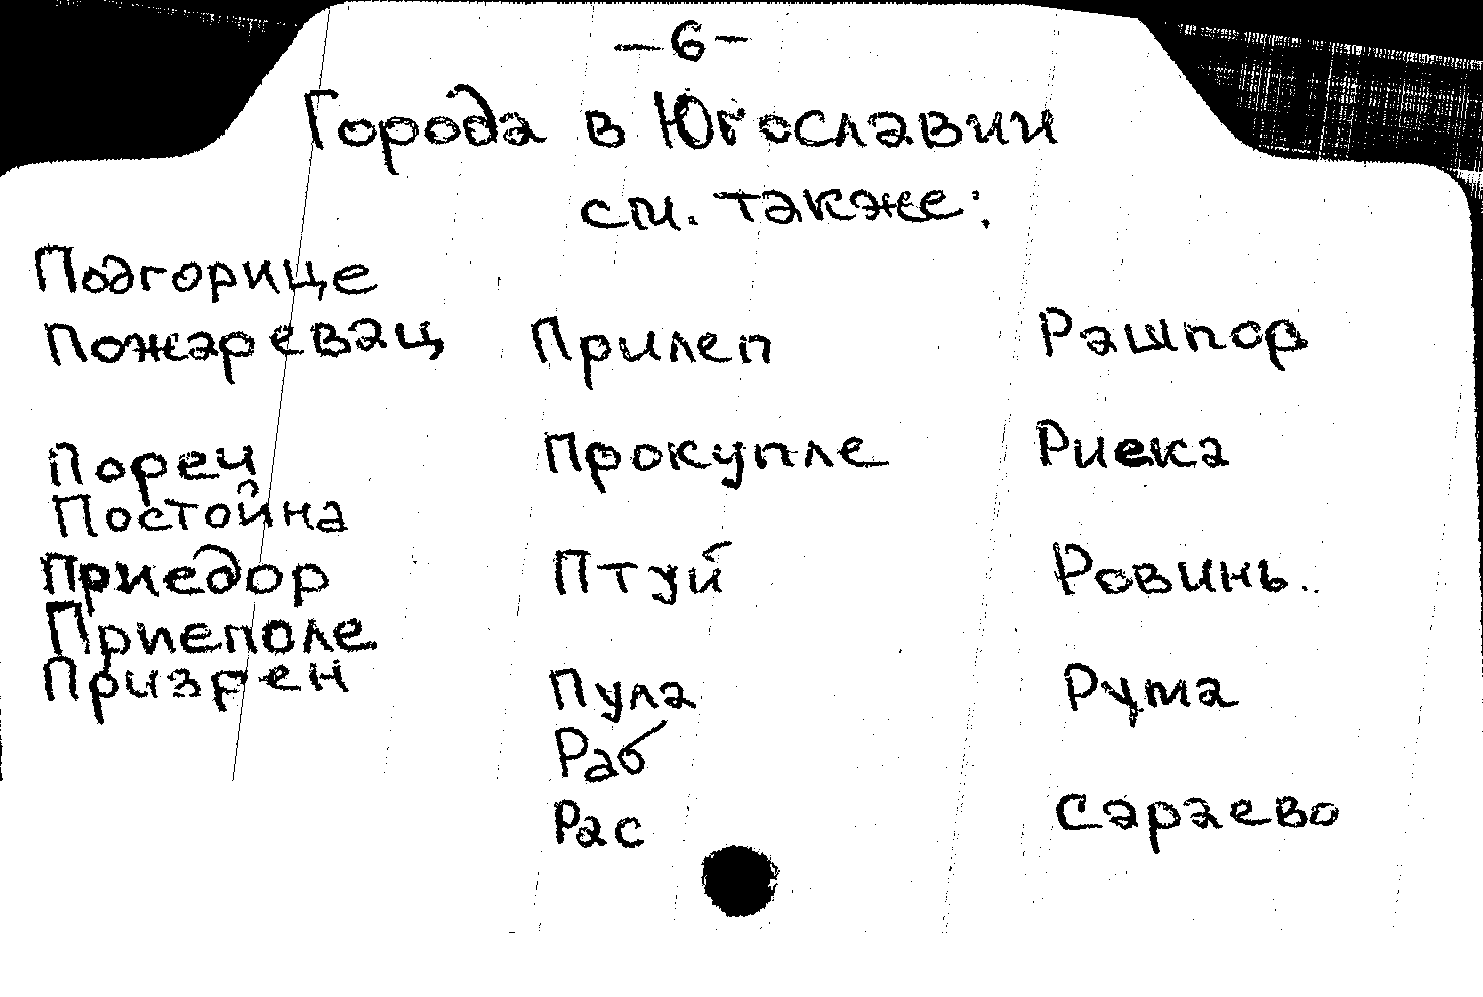 -6-
Города в Югославии
см. также:
Подгорице
Пожаревац
Пореч
Постойна
Приедор
Приеполе
Призрен
Прилеп
Прокупле
Птуй
Пула
Раб
Рас
Рашпор
Риека
Ровинь.
Рума
Сараево